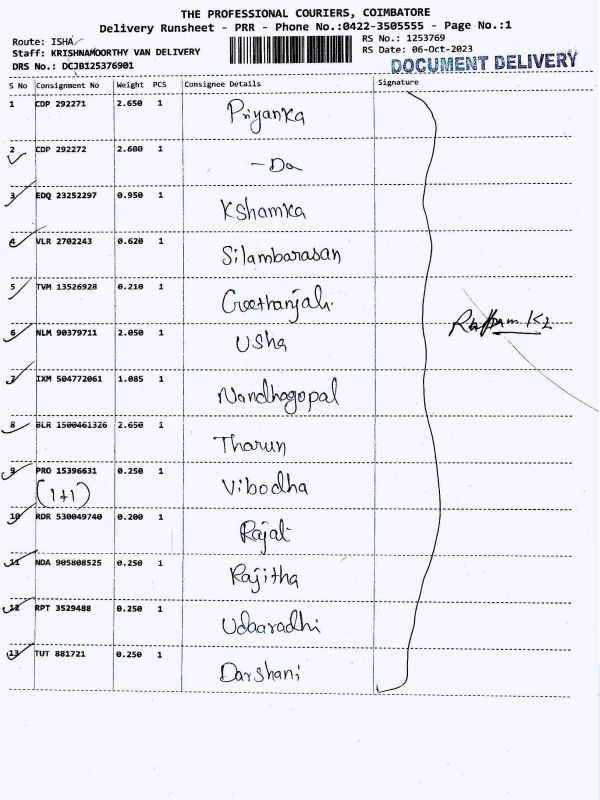 THE PROFESSIONAL COURIERS, COIMBATORE
Delivery Runsheet - PRR - Phone No.:0422-3505555 - Page No.:1
Route: ISHA
Staff: KRISHNAMOORTHY VAN DELIVERY
DRS No.: DCJB125376901
RS No.: 1253769
RS Date: 06-Oct-2023
DOCUMENT DELIVERY
S No Consignment No Weight PCS Consignee Details Signature
1 CDP 292271 2.650 1 Priyanka
2 CDP 292272 2.600 1 -Do
3 EDQ 23252297 0.950 1 Kshamka
4 VLR 2702243 0.620 1 Silambarasan
5 TVM 13526928 0.210 1 Geethanjali
6 NLM 90379711 2.050 1 Usha
7 IXM 504772061 1.085 1 Nandhagopal
8 BLR 1500461326 2.650 1 Tharun
9 PRO 15396631 0.250 1 Vibodha
(1+1)
10 RDR 530049740 0.200 1 Rajal
11 NDA 905808525 0.250 1 Rajitha
12 RPT 3529488 0.250 1
13 TUT 881721 0.250 1 Darshani